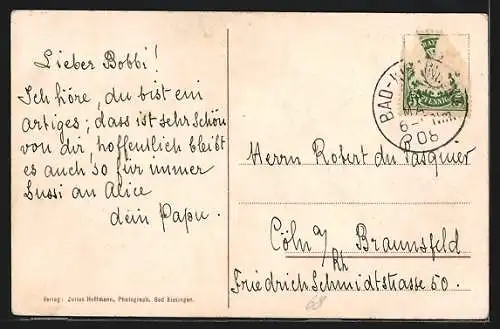 Lieber Bobbi!
Ich höre, du bist ein
artiges; dass ist sehr Schön
von dir, hoffentlich bleibt
es auch so für immer
Lussi an Alice
dein Papa.
Verlag: Julius Hoffmann, Photograph, Bad Kissingen.
BAD-KI
6-7 Nm.
06
PFENNIG
Herrn Robert du Pasquier
Cöln a/Rh Braunsfeld
Friedrich Schmidtstrasse 50.
68